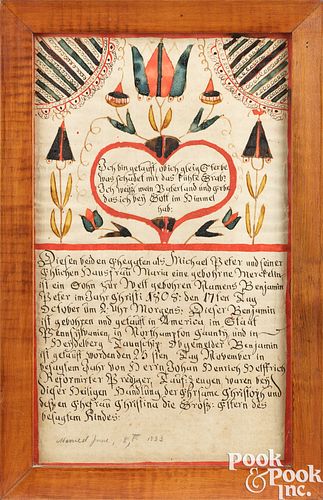 Ich bin getauft, ob ich gleich Sterbe
was schadet mir das kühle Grab?
Ich weiß mein Vaterland und Erbe
das ich bey Gott im Himmel
hab:
Diesen beiden Ehegatten als Michael Peter und seiner
Ehlichen Hausfrau Maria eine gebohrne Merckelin,
ist ein Sohn zur Welt gebohren Namens Benjamin
Peter im Jahr Christi 1808: den 17ten Tag
October um 2 Uhr Morgens: Dieser Benjamin
ist gebohren und getauft in America im Staat
Pennsylvanien in Northamton Caunty und in
Heidelberg Taunschip: Obgemelter Benjamin
ist getauft worden den 28sten Tag November in
besagtem Jahr von Herrn Johan Henrich Helffrich
Reformirter Prediger, Taufzeugen waren bey
dieser Heiligen Handlung der Ehrsame Christoph und
dessen Ehefrau Christina die Groß-Eltern des
besagten Kindes:
Married June, 1833
POOK
&POOK
Inc.